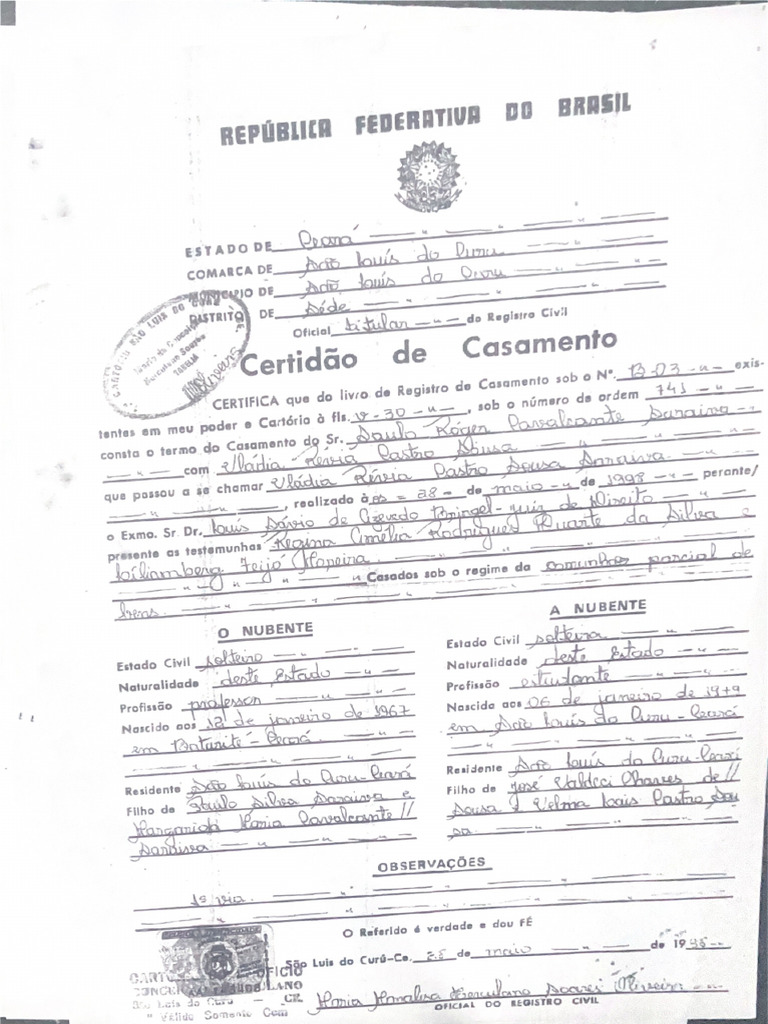 REPÚBLICA FEDERATIVA DO BRASIL
ESTADO DE Ceará
COMARCA DE São Luís do Curu
MUNICÍPIO DE São Luís do Curu
DISTRITO DE Séde
Oficial titular do Registro Civil
CARTÓRIO SÃO LUIS DO CURU
Maria da Conceição
Herculano Soares
Certidão de Casamento
CERTIFICA que do livro de Registro de Casamento sob o Nº. B-03 exis-
tentes em meu poder e Cartório à fls. V-30, sob o número de ordem 741
consta o termo do Casamento do Sr. Saulo Róger Cavalcante Saraiva
com Vládia Révia Castro Sousa
que passou a se chamar Vládia Révia Castro Sousa Saraiva
, realizado às 28 de maio de 1998 perante/
o Exmo. Sr. Dr. Luís Sávio de Azevedo Bringel-juiz de Direito
presente as testemunhas Regina Amélia Rodrigues Duarte da Silva e
Liliamberg Feijó Moreira
Casados sob o regime da comunhão parcial de
bens.
O NUBENTE
Estado Civil solteiro
Naturalidade deste Estado
Profissão professor
Nascido aos 12 de janeiro de 1967
em Baturité-Ceará
Residente São Luís do Curu-Ceará
Filho de Stuilo Silva Saraiva e
Margarida Maria Cavalcante //
Saraiva
A NUBENTE
Estado Civil solteira
Naturalidade deste Estado
Profissão estudante
Nascida aos 06 de janeiro de 1979
em São Luís do Curu-Ceará
Residente São Luís do Curu-Ceará
Filho de José Valdeci Chaves de //
Sousa e Velma Lais Castro Sou
sa.
OBSERVAÇÕES
1ª via
O Referido é verdade e dou FÉ
São Luis do Curú-Ce. 28 de maio de 19
OFÍCIO
São Luis do Curu - CE.
Válido Somente Com
Maria Herculano Soares Oliveira
OFICIAL DO REGISTRO CIVIL